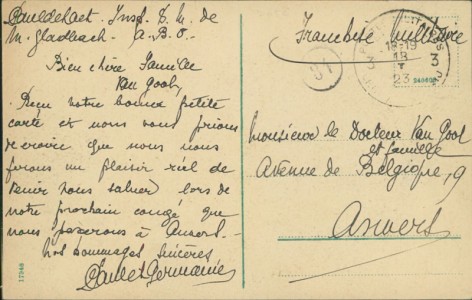 Pauldehaet. Insp. T. M. de
M. gladbach. A. B. O.
Bien chère famille
Van Gool,
Reçu votre bonne petite
carte et nous vous prions
de croire que nous nous
ferons un plaisir réel de
venir vous saluer lors de
notre prochain congé que
nous passerons à Anvers.
Nos hommages sincères
Paul et Germaine
17268
Franchise militaire
51
18-19
3 18 3
V
23
Monsieur le Docteur Van Gool
et famille
Avenue de Belgique, 9
Anvers